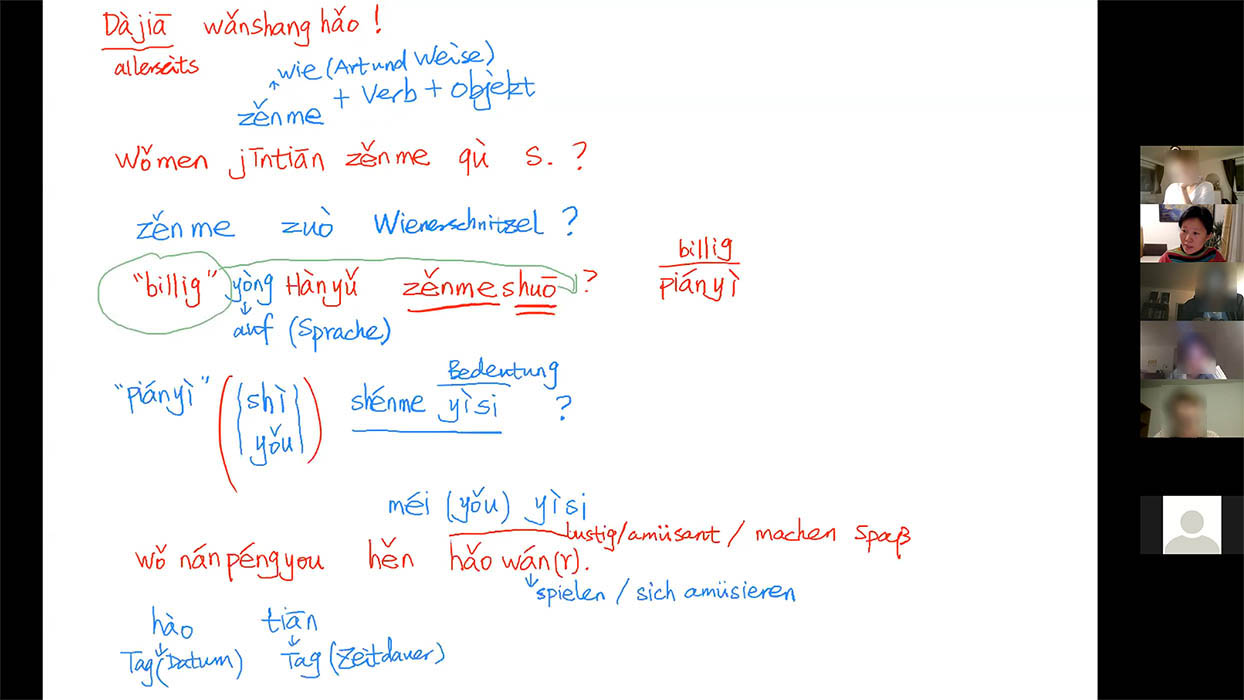 Dàjiā wǎnshang hǎo!
allerseits
wie (Art und Weise)
zěnme + Verb + Objekt
wǒmen jīntiān zěnme qù S. ?
zěnme zuò Wienerschnitzel ?
"billig" yòng Hànyǔ zěnme shuō ?
auf (Sprache)
billig
piányì
Bedeutung
"piányì" ( { shì yǒu } ) shénme yìsi ?
méi (yǒu) yìsi
lustig/amüsant / machen Spaß
wǒ nánpéngyou hěn hǎo wán(r).
spielen / sich amüsieren
hào tiān
Tag (Datum) Tag (Zeitdauer)